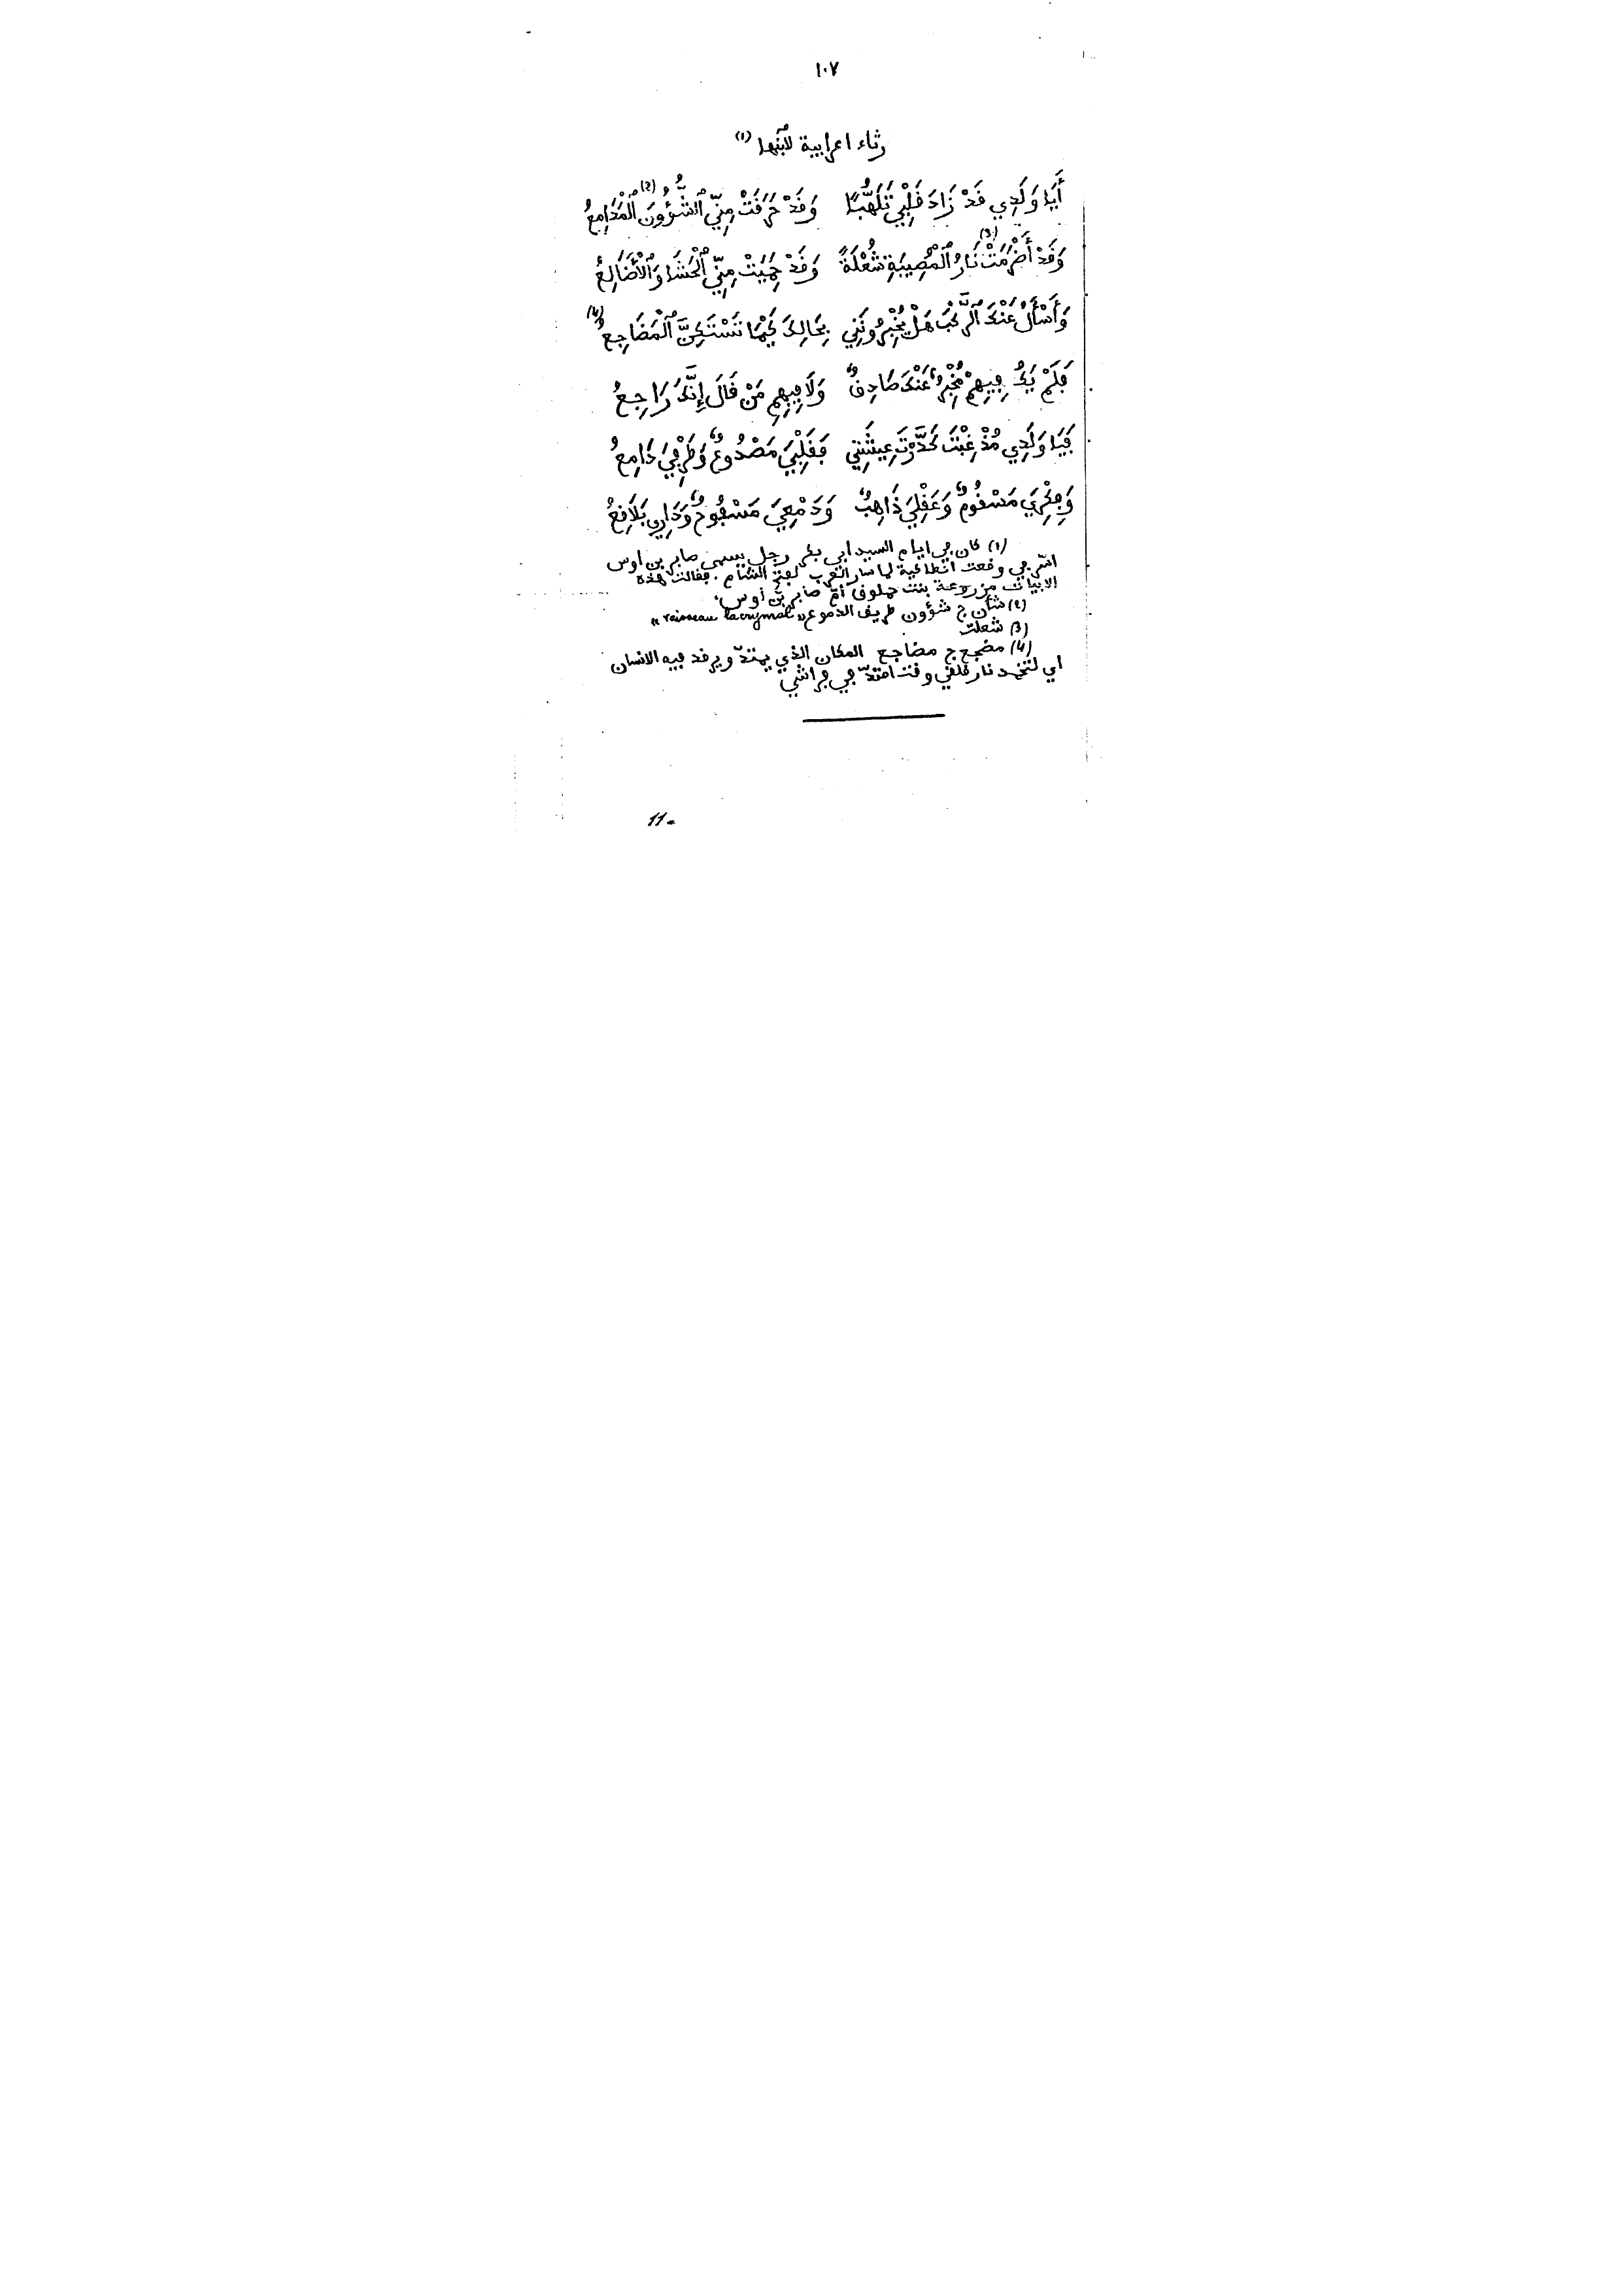 ١٠٧
رثاء اعرابية لابنها (١)
أَيَا وَلَدِي قَدْ زَادَ قَلْبِي تَلَهُّبًا وَقَدْ حَرَقَتْ مِنِّي ٱلشُّؤُونَ ٱلْمَدَامِعُ (2)
وَقَدْ أَضْرَمَتْ (3) نَارُ ٱلْمُصِيبَةِ شُعْلَةً وَقَدْ حَمِيَتْ مِنِّي ٱلْحَشَا وَٱلْأَضَالِعُ
وَأَسْأَلُ عَنْكَ ٱلرَّكْبَ هَلْ يُخْبِرُونَنِي بِحَالِكَ كَيْمَا تَسْتَكِنَّ ٱلْمَضَاجِعُ (4)
فَلَمْ يَكُ فِيهِمْ مُخْبِرٌ عَنْكَ صَادِقٌ وَلَا فِيهِمِ مَنْ قَالَ إِنَّكَ رَاجِعُ
فَيَا وَلَدِي مُذْ غِبْتَ كَدَّرْتَ عِيشَتِي فَقَلْبِيَ مَصْدُوعٌ وَطَرْفِيَ دَامِعُ
وَفِكْرِيَ مَسْقُومٌ وَعَقْلِيَ ذَاهِبٌ وَدَمْعِيَ مَسْفُوحٌ وَدَارِي بَلَاقِعُ
(١) كان في ايام السيد ابي بكر رجل يسمى صابر بن اوس
اسّر في وقعت انطاكية لما سار العرب لفتح الشام. فقالت هذه
الابيات مزروعة بنت حملوق أمّ صابر بن أوس.
(2) شأن ج شؤون طريق الدموع "vaisseau lacrymal"
(3) شعلت
(4) مضجع ج مضاجع المكان الذي يمتدّ ويرقد فيه الانسان
اي لتخمد نار قلقي وقت امتدّ في فراشي
11-